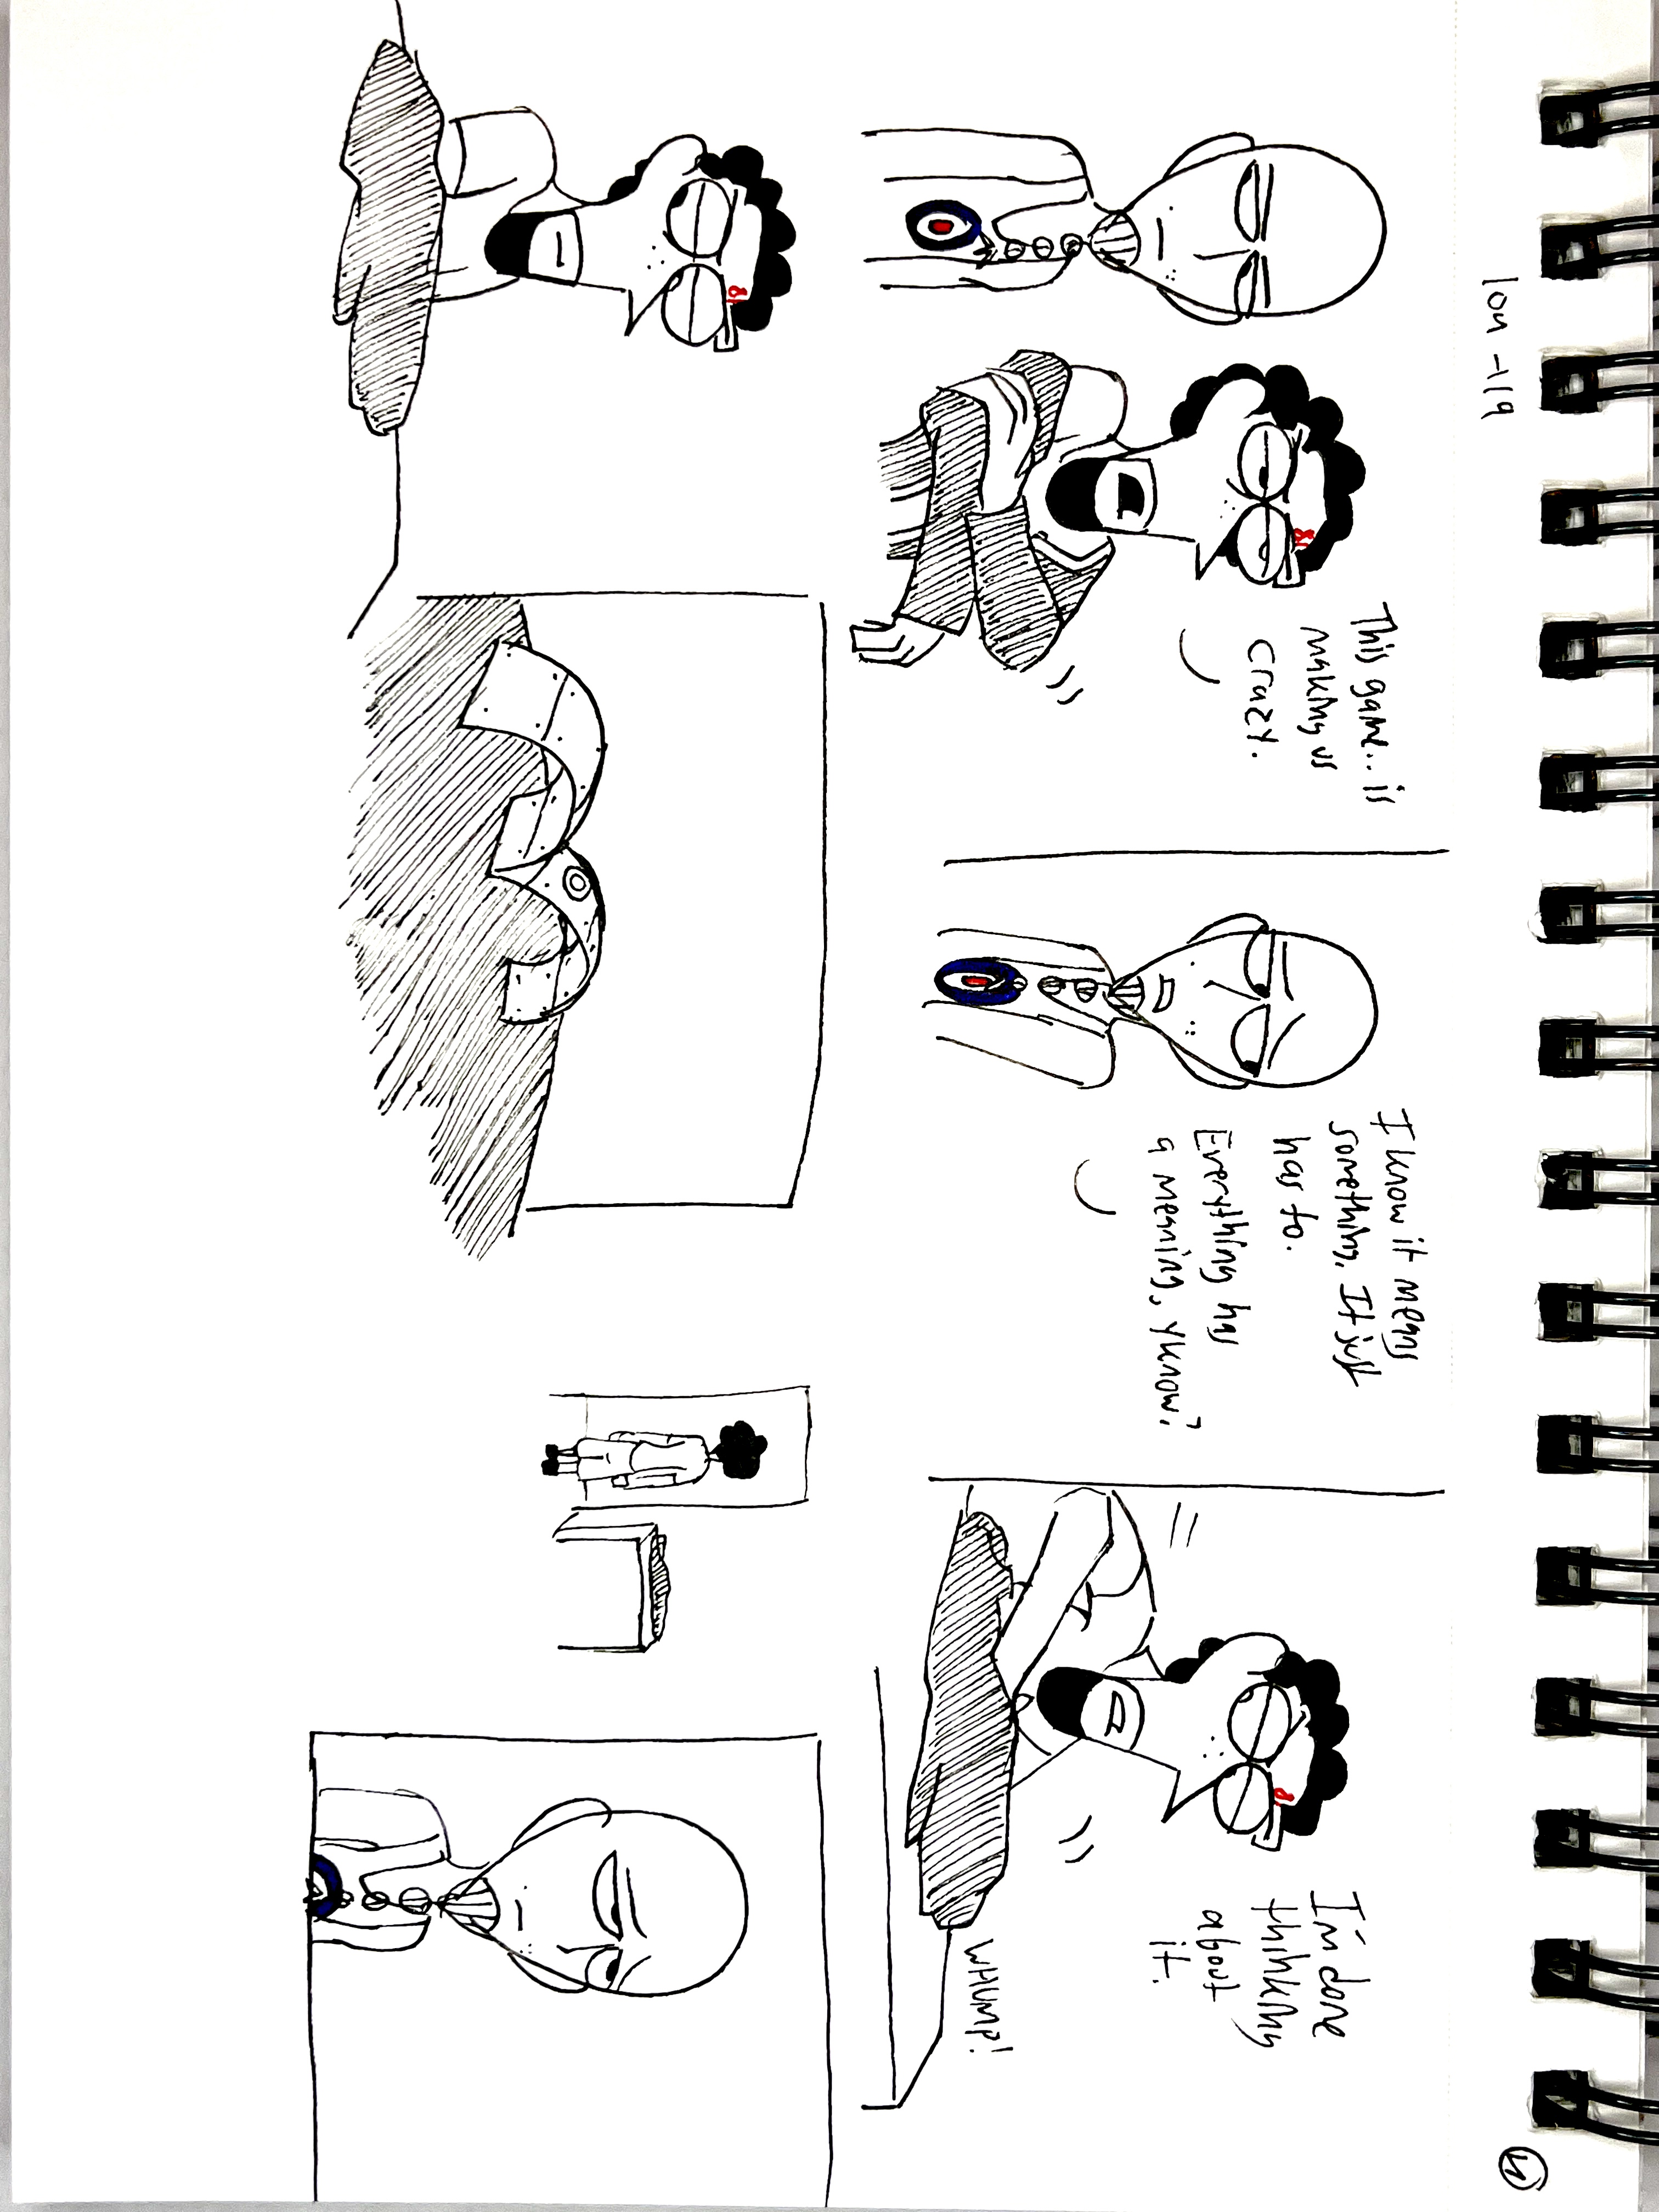 This game.. is
making us
crazy.
I know it means
something. It just
has to.
Everything has
a meaning, y'know?
I'm done
thinking
about
it.
WHUMP!